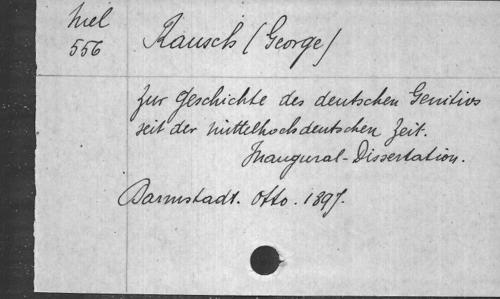 hiel
556
Rausch (George)
Zur Geschichte des deutschen Genitivs
seit der mittelhochdeutschen Zeit.
Inaugural-Dissertation.
Darmstadt. Otto. 1897.